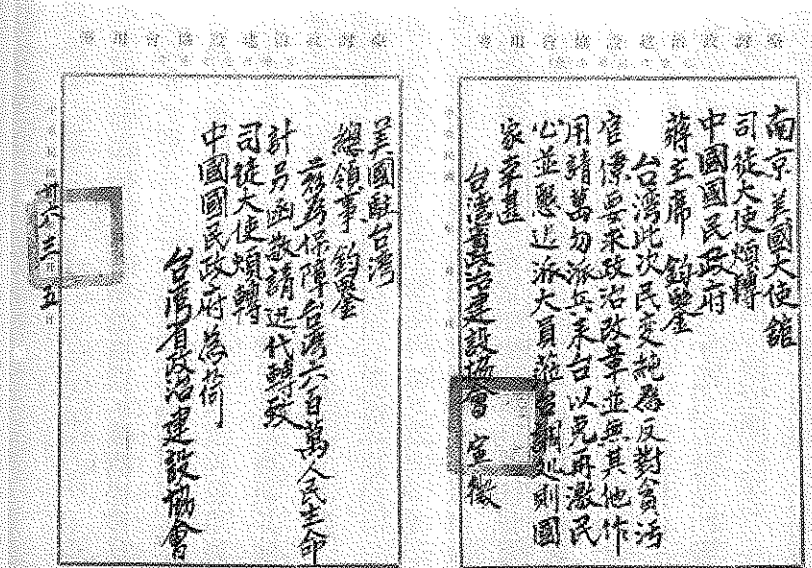 南京美國大使館
司徒大使煩轉
中國國民政府
蔣主席 鈞鑒
台湾此次民变純爲反對貪污
官僚要求政治改革並無其他作
用請萬勿派兵来台以免再激民
心並懇迅派大員蒞台調処則國
家幸甚
台湾省政治建設協會
美國駐台湾
總領事 鈞鑒
茲為保障台灣六百萬人民生命
計另函敬請迅代轉致
司徒大使煩轉
中國國民政府為荷
台湾省政治建設協會
卅六 三 五